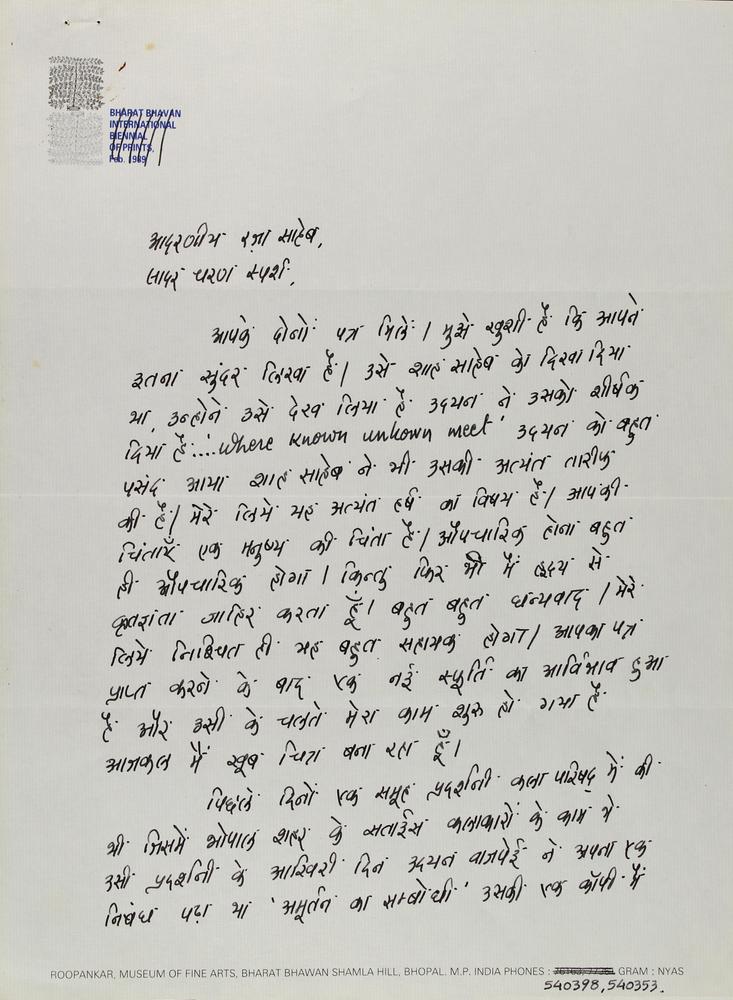 BHARAT BHAVAN
INTERNATIONAL
BIENNIAL
OF PRINTS,
Feb. 1989
आदरणीय रज़ा साहेब,
सादर चरण स्पर्श.
आपके दोनों पत्र मिले। मुझे खुशी है कि आपने
इतना सुंदर लिखा है। उसे शाह साहेब को दिखा दिया
था, उन्होंने उसे देख लिया है उदयन ने उसको शीर्षक
दिया है.... 'where known unkown meet' उदयन को बहुत
पसंद आया शाह साहेब ने भी उसकी अत्यंत तारीफ़
की है। मेरे लिये यह अत्यंत हर्ष का विषय है। आपकी
चिंताएँ एक मनुष्य की चिंता है। औपचारिक होना बहुत
ही औपचारिक होगा। किन्तु फिर भी मैं हृदय से
कृतज्ञता जाहिर करता हूँ। बहुत बहुत धन्यवाद। मेरे
लिये निश्चित ही यह बहुत सहायक होगा। आपका पत्र
प्राप्त करने के बाद एक नई स्फूर्ति का आविर्भाव हुआ
है और उसी के चलते मेरा काम शुरू हो गया है
आजकल मैं खूब चित्र बना रहा हूँ।
पिछले दिनों एक समूह प्रदर्शनी कला परिषद् में की
थी जिसमें भोपाल शहर के सताईस कलाकारों के काम थे
उसी प्रदर्शनी के आखिरी दिन उदयन वाजपेई ने अपना एक
निबंध पढ़ा था 'अमूर्तन का सम्बोधी' उसकी एक कॉपी मैं
ROOPANKAR, MUSEUM OF FINE ARTS, BHARAT BHAWAN SHAMLA HILL, BHOPAL. M.P. INDIA PHONES : GRAM : NYAS
540398, 540353.